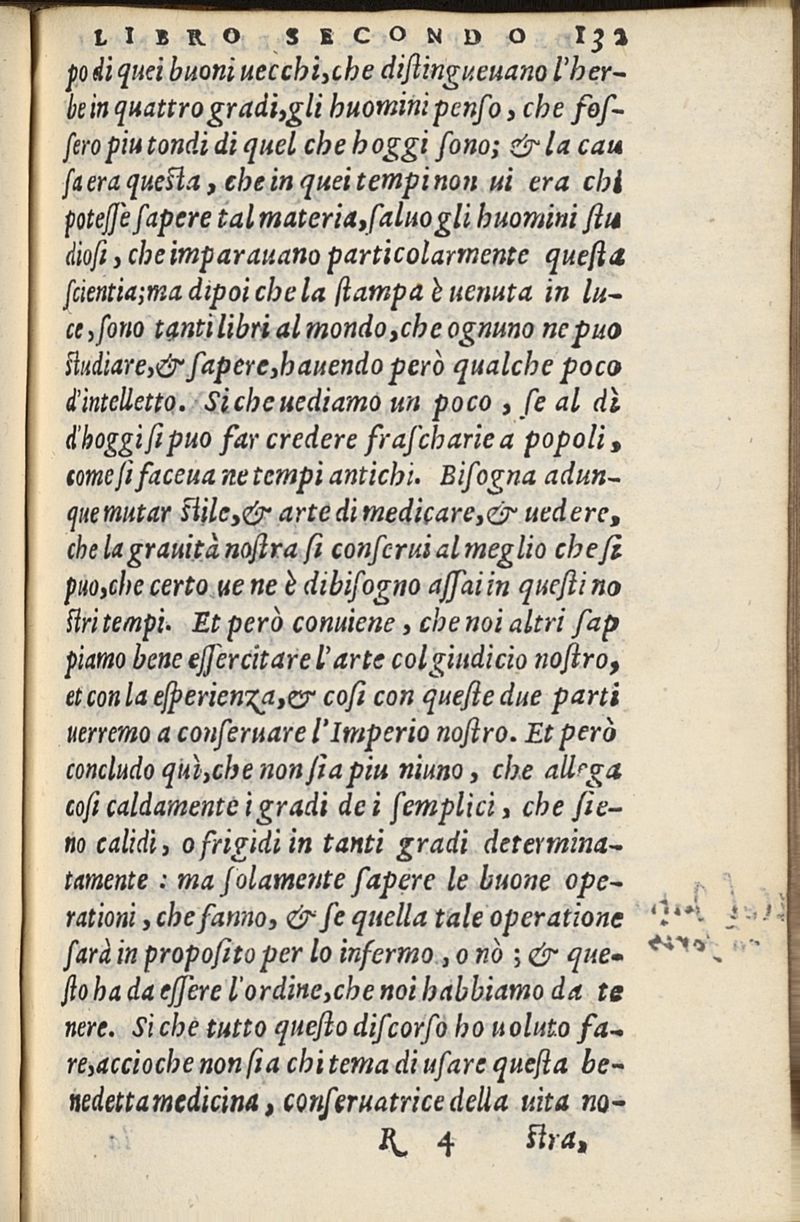 LIBRO SECONDO 132
po di quei buoni uecchi, che diſtingueuano l'her-
be in quattro gradi, gli huomini penſo, che foſ-
ſero piu tondi di quel che hoggi ſono; & la cau
ſa era queſta, che in quei tempi non ui era chi
poteſſe ſapere tal materia, ſaluo gli huomini ſtu
dioſi, che imparauano particolarmente queſta
ſcientia; ma dipoi che la ſtampa è uenuta in lu-
ce, ſono tanti libri al mondo, che ognuno ne puo
ſtudiare, & ſapere, hauendo però qualche poco
d'intelletto. Si che uediamo un poco, ſe al dì
d'hoggi ſi puo far credere fraſcharie a popoli,
come ſi faceua ne tempi antichi. Biſogna adun-
que mutar ſtile, & arte di medicare, & uedere,
che la grauità noſtra ſi conſerui al meglio che ſi
puo, che certo ue ne è dibiſogno aſſai in queſti no
ſtri tempi. Et però conuiene, che noi altri ſap
piamo bene eſſercitare l'arte col giudicio noſtro,
et con la eſperienza, & coſi con queſte due parti
uerremo a conſeruare l'Imperio noſtro. Et però
concludo quì, che non ſia piu niuno, che allega
coſi caldamente i gradi de i ſemplici, che ſie-
no calidi, o frigidi in tanti gradi determina-
tamente: ma ſolamente ſapere le buone ope-
rationi, che fanno, & ſe quella tale operatione
ſarà in propoſito per lo infermo, o nò; & que-
ſto ha da eſſere l'ordine, che noi habbiamo da te
nere. Si che tutto queſto diſcorſo ho uoluto fa-
re, accioche non ſia chi tema di uſare queſta be-
nedetta medicina, conſeruatrice della uita no-
R 4 ſtra,